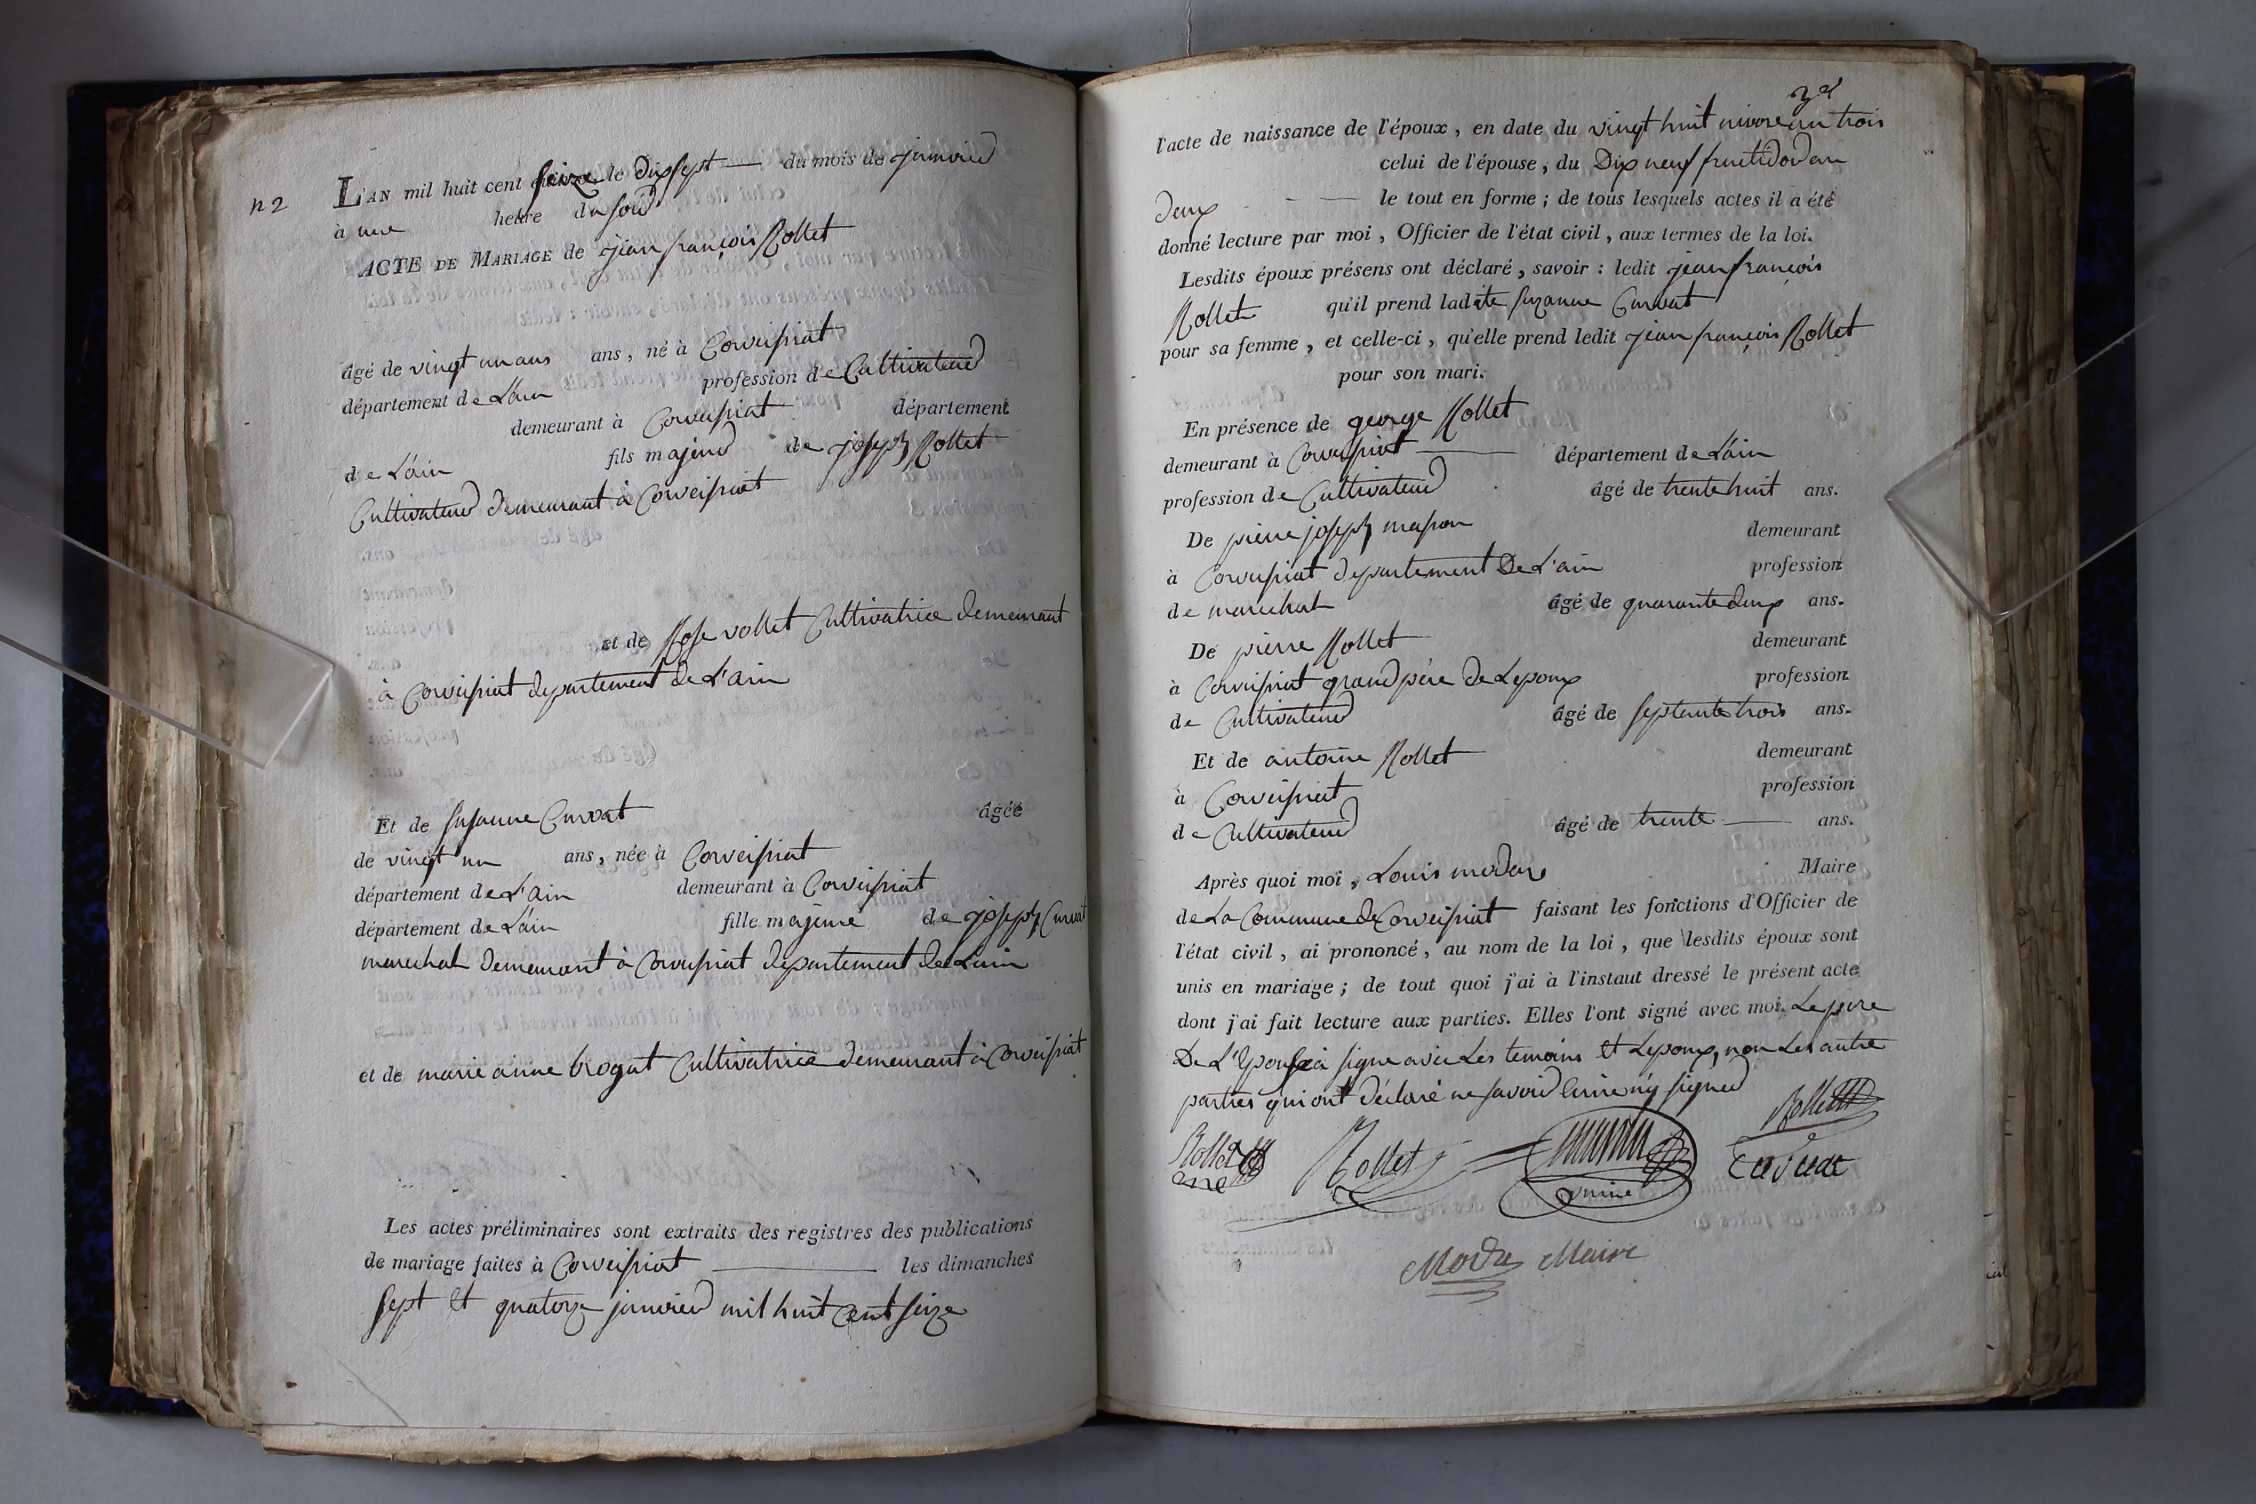 n 2
L'AN mil huit cent seize le dix sept du mois de janvier
à une heure du soir
ACTE DE MARIAGE de jean françois Rollet
âgé de vingt un ans ans, né à Corveissiat
département de L'ain profession de Cultivateur
demeurant à Corveissiat département
de L'ain fils majeur de joseph Rollet
Cultivateur demeurant à Corveissiat
et de Rose vollet Cultivatrice demeurant
à Corveissiat departement de L'ain
Et de Susanne Curvat âgée
de vingt un ans, née à Corveissiat
département de L'ain demeurant à Corveissiat
département de L'ain fille majeure de joseph Curvat
marechal demeurant à Corveissiat departement de L'ain
et de marie anne brogat Cultivatrice demeurant à Corveissiat
Les actes préliminaires sont extraits des registres des publications
de mariage faites à Corveissiat les dimanches
Sept et quatorze janvier mil huit cent seize
l'acte de naissance de l'époux, en date du vingt huit nivose an trois
celui de l'épouse, du Dix neuf fructidor an
deux le tout en forme; de tous lesquels actes il a été
donné lecture par moi, Officier de l'état civil, aux termes de la loi.
Lesdits époux présens ont déclaré, savoir: ledit jean françois
Rollet qu'il prend ladite suzanne Curvat
pour sa femme, et celle-ci, qu'elle prend ledit jean françois Rollet
pour son mari.
En présence de george Rollet
demeurant à Corveissiat département de L'ain
profession de Cultivateur âgé de trente huit ans.
De pierre joseph masson demeurant
à Corveissiat departement De L'ain profession
de marechal âgé de quarante deux ans.
De pierre Rollet demeurant
à Corveissiat grand père de Lepoux profession
de Cultivateur âgé de septante trois ans.
Et de antoine Rollet demeurant
à Corveissiat profession
de Cultivateur âgé de trente ans.
Après quoi moi, Louis modas Maire
de La Commune de Corveissiat faisant les fonctions d'Officier de
l'état civil, ai prononcé, au nom de la loi, que lesdits époux sont
unis en mariage; de tout quoi j'ai à l'instant dressé le présent acte
dont j'ai fait lecture aux parties. Elles l'ont signé avec moi. Le pere
De L'Epouse a signe avec Les temoins et Lepoux, non Les autre
parties qui ont déclaré ne savoir Ecrire ny signer
Rollet
Rollet Rollet
Modas Maire